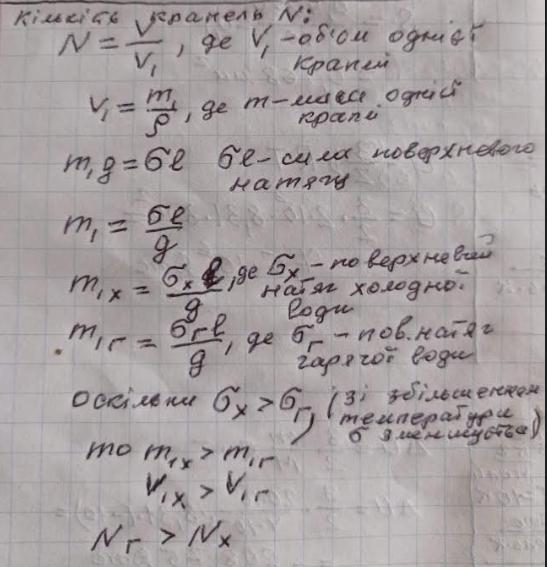 Кількість крапель N:
N = V/V₁, де V₁ - об'єм однієї
краплі
V₁ = m₁/ρ, де m - маса однієї
краплі
m₁g = σl σl - сила поверхневого
натягу
m₁ = σl/g
m₁ₓ = σₓl/g, де σₓ - поверхневий
натяг холодної
води
m₁г = σгl/g, де σг - пов. натяг
гарячої води
Оскільки σₓ > σг, (зі збільшенням
температури
σ зменшується)
то m₁ₓ > m₁г
V₁ₓ > V₁г
Nг > Nₓ